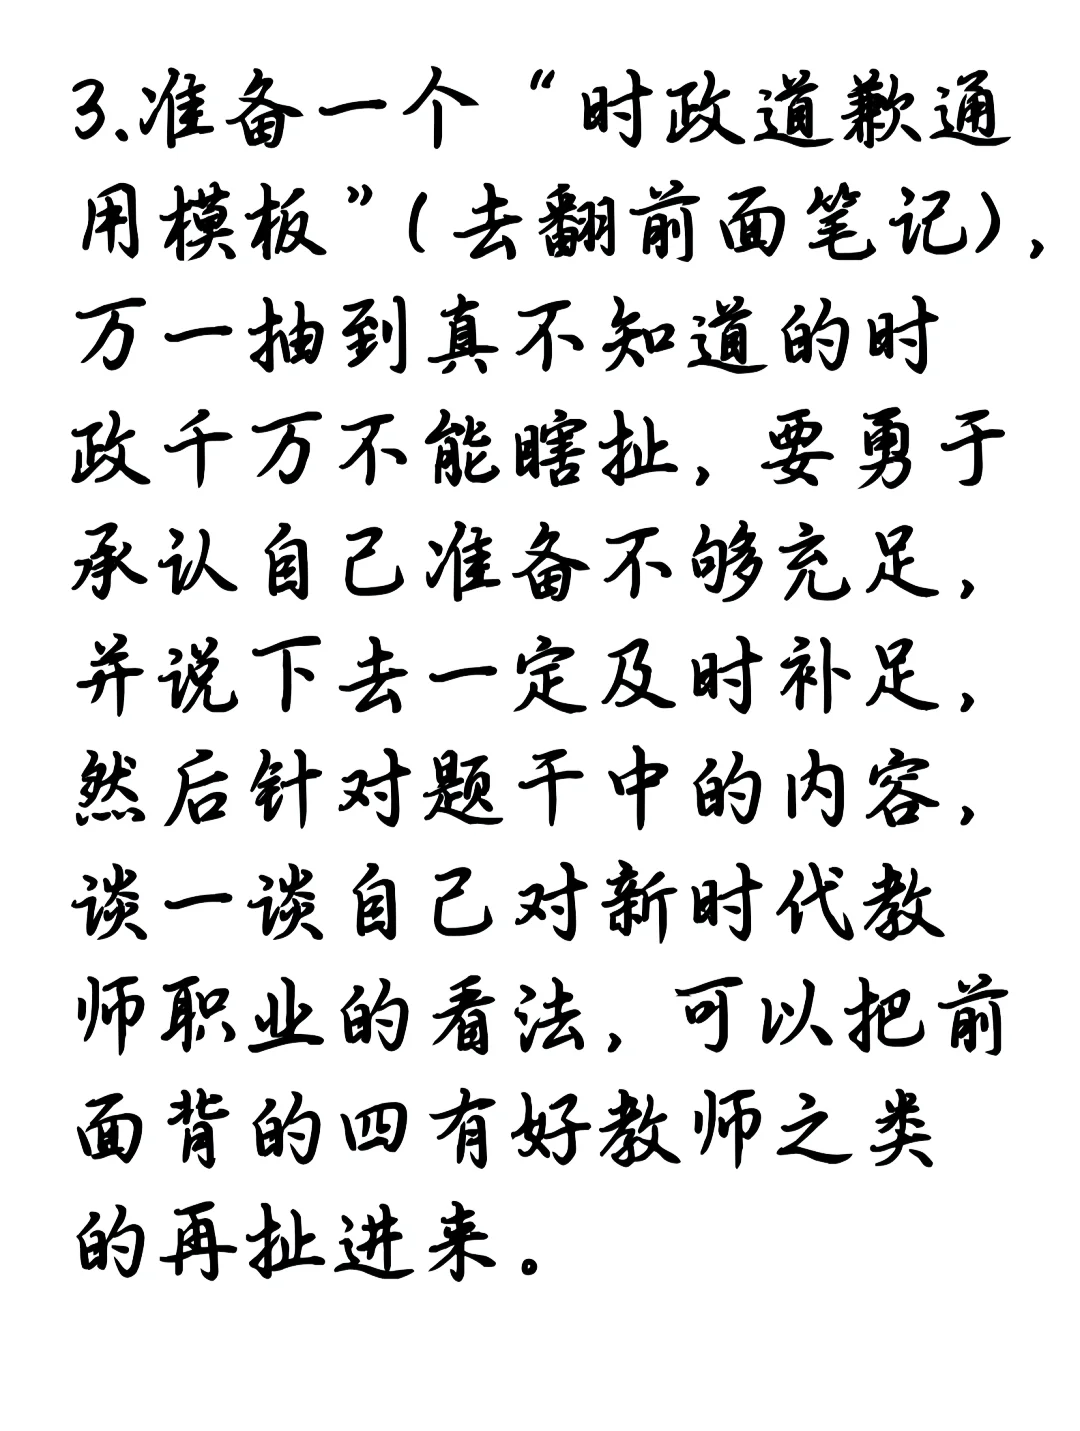 3.准备一个“时政道歉通
用模板”(去翻前面笔记),
万一抽到真不知道的时
政千万不能瞎扯,要勇于
承认自己准备不够充足,
并说下去一定及时补足,
然后针对题干中的内容,
谈一谈自己对新时代教
师职业的看法,可以把前
面背的四有好教师之类
的再扯进来。